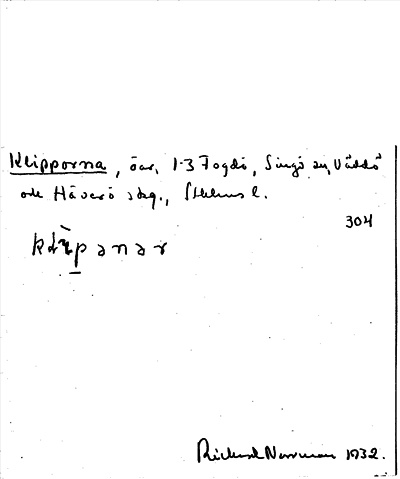 Klipporna, öar, 1-3 Fogdö, Singö sn, Väddö
och Häverö skg., Sthlms l.
304
Richard Norrman 1932.